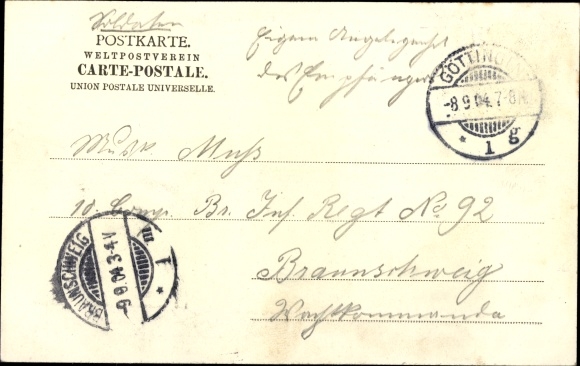 Soldaten
POSTKARTE.
WELTPOSTVEREIN
CARTE-POSTALE.
UNION POSTALE UNIVERSELLE.
Eigene Angelegenheit
des Empfängers
GÖTTINGEN
-8 9 04.7-8N.
* 1 g
Musk. Muß
10. Comp. Br. Inf. Regt No. 92
Braunschweig
Wachtkommando
BRAUNSCHWEIG
-9 9 04 3-4V
* 1